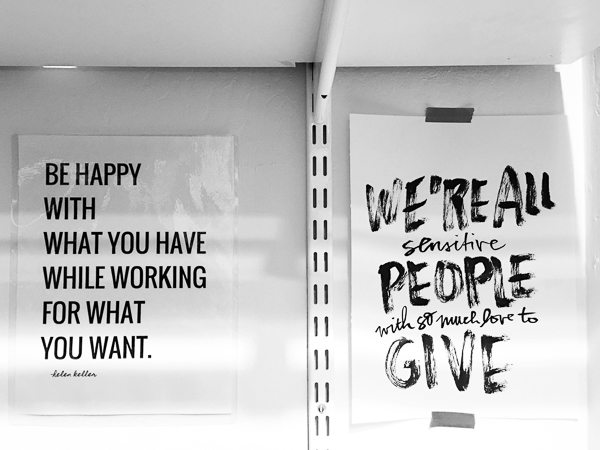 BE HAPPY
WITH
WHAT YOU HAVE
WHILE WORKING
FOR WHAT
YOU WANT.
-helen keller
WE'RE ALL
sensitive
PEOPLE
with so much love to
GIVE